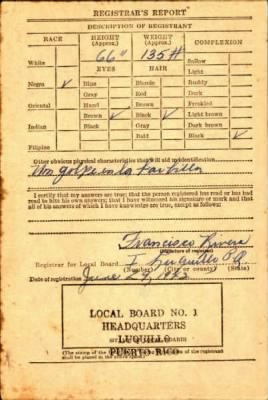 REGISTRAR'S REPORT
DESCRIPTION OF REGISTRANT
RACE HEIGHT (Approx.) WEIGHT (Approx.) COMPLEXION
66" 135#
White EYES HAIR Sallow
Light
Negro ✓ Blue Blonde Ruddy
Gray Red Dark
Oriental Hazel Brown Freckled
Brown ✓ Black ✓ Light brown
Indian Black Gray Dark brown
Bald Black ✓
Filipino
Other obvious physical characteristics that will aid in identification
en la
I certify that my answers are true; that the person registered has read or has had
read to him his own answers; that I have witnessed his signature or mark and that
all of his answers of which I have knowledge are true, except as follows:
Francisco Rivera
(Signature of registrar)
Registrar for Local Board 1 Luquillo P.R.
(Number) (City or county) (State)
Date of registration June
LOCAL BOARD NO. 1
HEADQUARTERS
LUQUILLO
PUERTO RICO
(The stamp of the
shall be placed in the above space.)